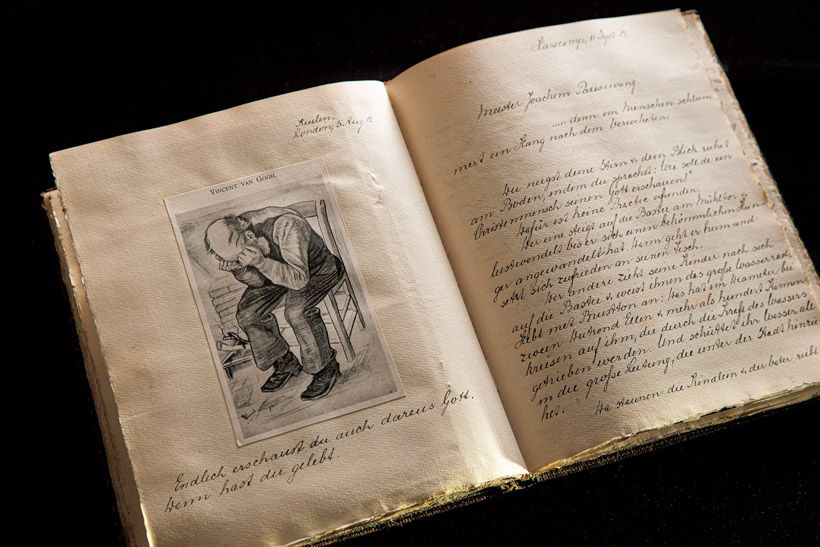 London, 5. Aug. 12
VINCENT VAN GOGH.
Endlich erschaust du auch daraus Gott.
Wenn hast du gelebt.
Meister Joachim Pausewang
..... denn im Menschen schlum
mert ein Hang nach dem
Du neigst deine Stirn & dein Blick ruhet
am Boden, indem du sprichst: Wie solle da ein
Christenmensch seinen Gott erschauen!
Dafür ist keine erfunden.
Der eine steigt auf die Bastei am Mühltor &
lustwandelt bis er sich einen bekömmlichen Hun
ger angewandelt hat. Dann geht er heim und
setzt sich zufrieden an seinen Tisch.
Der andere zieht seine Kinder nach sich
auf die Bastei & weist ihnen das große Wasserrad.
Hebt mit Brustton an: Das hat im Diameter bei
zween Dutzend Ellen & mehr als hundert Kannen
kreisen auf ihm, die durch die Kraft des Wassers
getrieben werden. Und schüttet ihr Wasser all
in die große Leitung, die unter der Stadt hinzie
het.
Da staunen die Kindlein & der Vater reibt